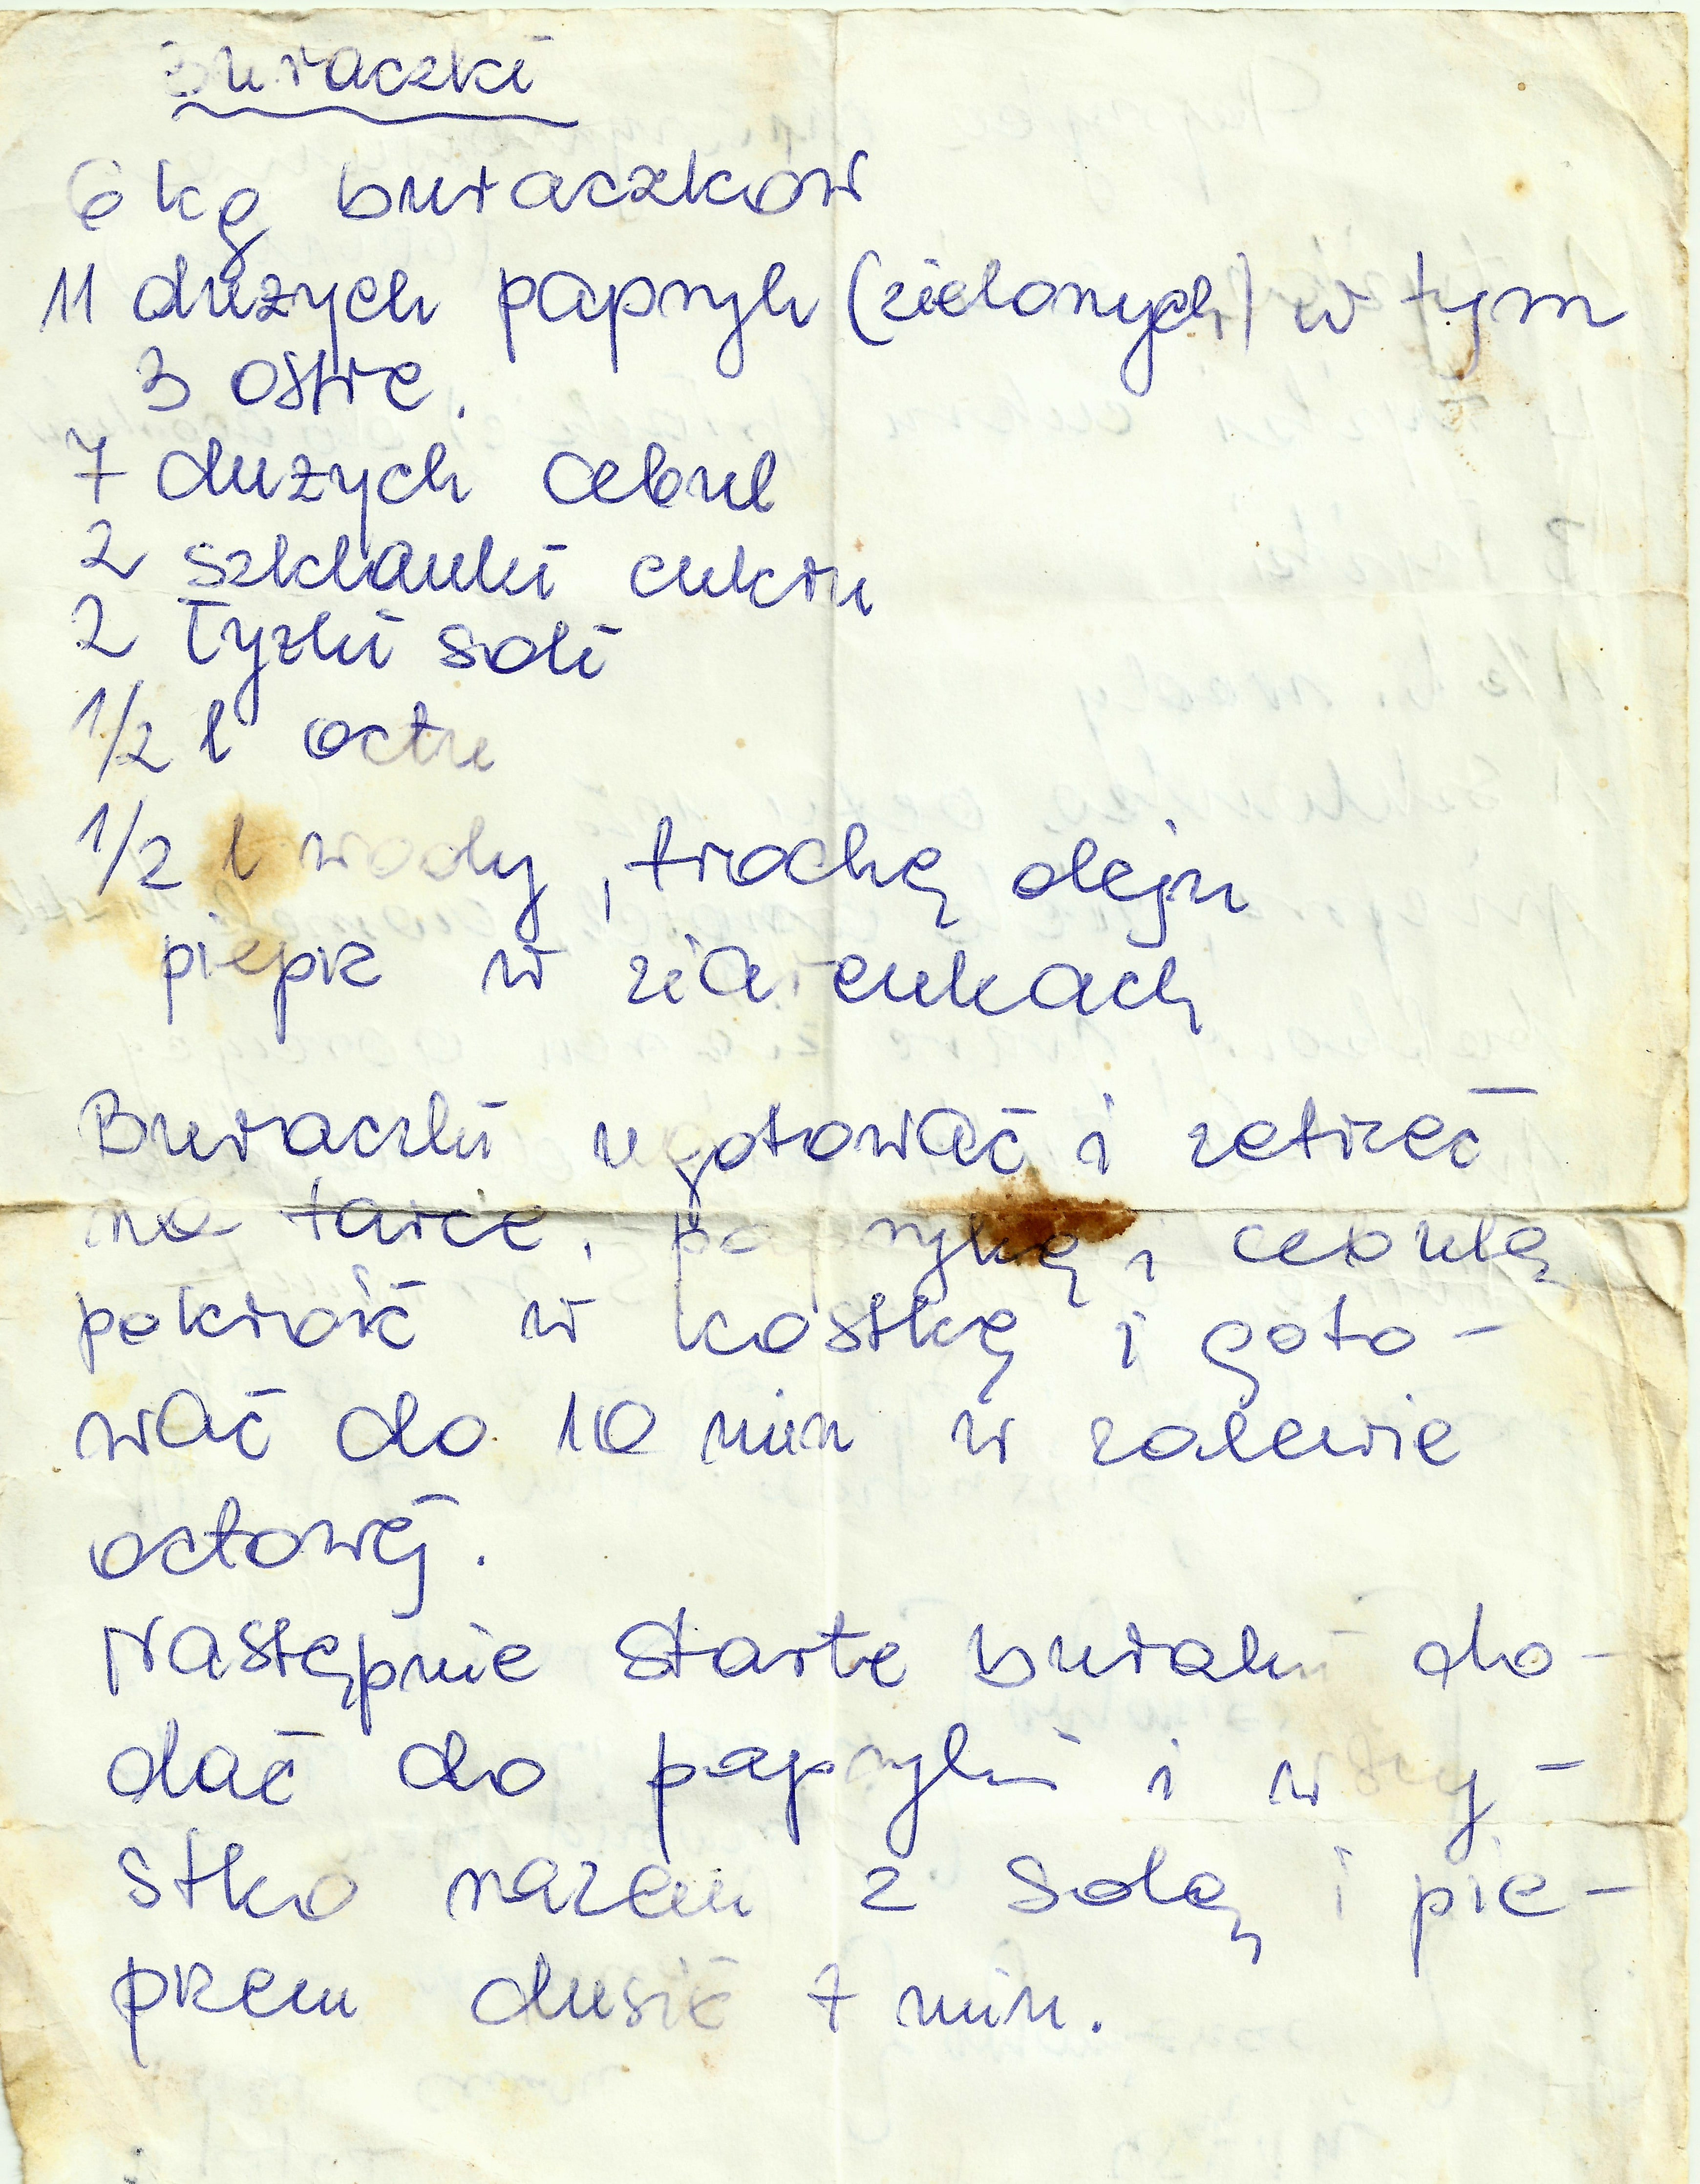 Buraczki
6 kg buraczków
11 dużych papryk (zielonych) w tym
3 ostre.
7 dużych cebul
2 szklanki cukru
2 łyżki soli
1/2 l octu
1/2 l wody, trochę oleju
pieprz w ziarenkach
Buraczki ugotować i zetrzeć
na tarce, paprykę i cebulę
pokroić w kostkę i goto-
wać do 10 min w zalewie
octowej.
Następnie starte buraki do-
dać do papryki i wszy-
stko razem z solą i pie-
przem dusić 7 min.